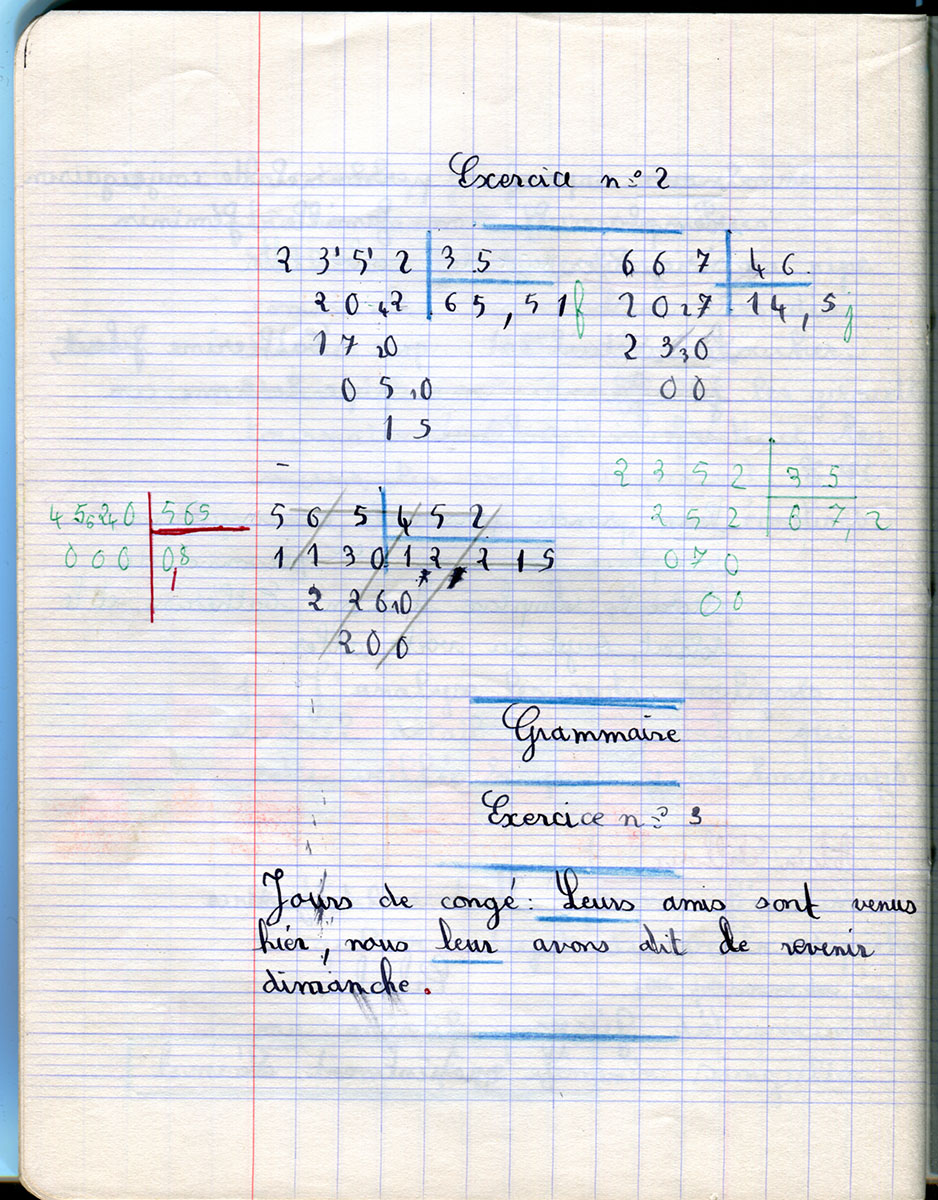 Exercice n° 2
2 3' 5' 2 | 3 5
2 0 4 2 | 6 5 , 5 1 f
1 7 2 0
0 5 1 0
1 5
6 6 7 | 4 6
2 0 2 7 | 1 4 , 5 j
2 3 3 0
0 0
2 3 5 2 | 3 5
2 5 2 | 6 7 , 2
0 7 0
0 0
4 5 6 2 4 0 | 5 6 5
0 0 0 | 0,8
5 6 5 | 4 5 2
1 1 3 0 | 1 2 2 1 5
2 2 6 1 0
2 0 0
Grammaire
Exercice n° 3
Jours de congé : Leurs amis sont venus
hier, nous leur avons dit de revenir
dimanche.